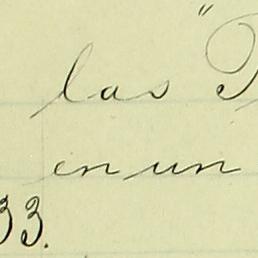 las "P
en un
33.